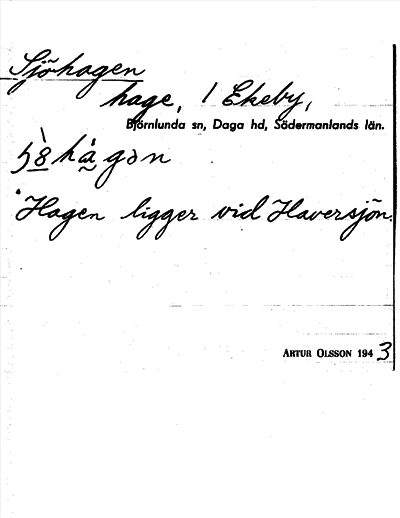 Sjöhagen
hage, 1 Ekeby,
Björnlunda sn, Daga hd, Södermanlands län.
Hagen ligger vid Haversjön.
ARTUR OLSSON 1943